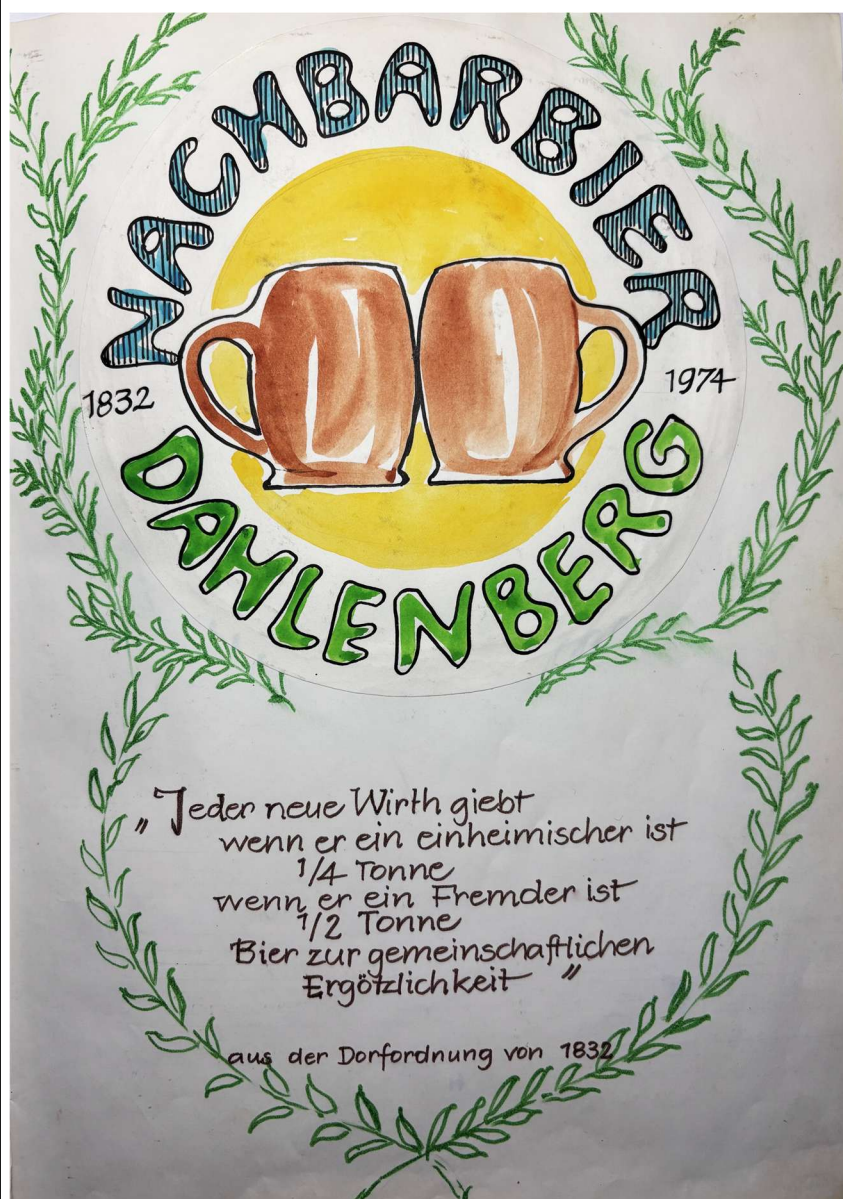 NACHBARBIER
1832
1974
DAHLENBERG
„Jeder neue Wirth giebt
wenn er ein einheimischer ist
1/4 Tonne
wenn er ein Fremder ist
1/2 Tonne
Bier zur gemeinschaftlichen
Ergötzlichkeit"
aus der Dorfordnung von 1832